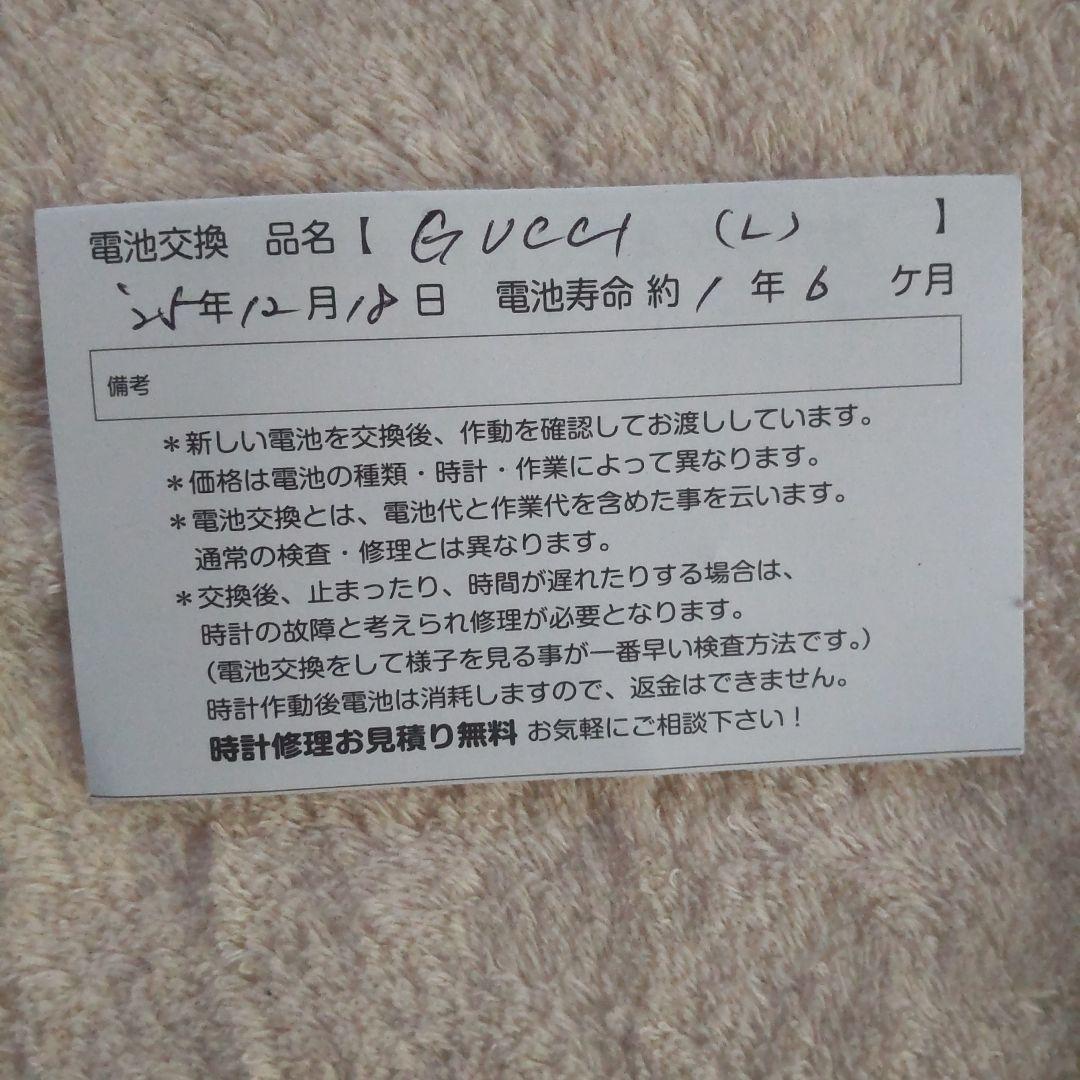 電池交換 品名【 GUCCI (L) 】
'25年12月18日 電池寿命 約1年6ヶ月
備考
＊新しい電池を交換後、作動を確認してお渡ししています。
＊価格は電池の種類・時計・作業によって異なります。
＊電池交換とは、電池代と作業代を含めた事を云います。
通常の検査・修理とは異なります。
＊交換後、止まったり、時間が遅れたりする場合は、
時計の故障と考えられ修理が必要となります。
（電池交換をして様子を見る事が一番早い検査方法です。）
時計作動後電池は消耗しますので、返金はできません。
時計修理お見積り無料 お気軽にご相談下さい！